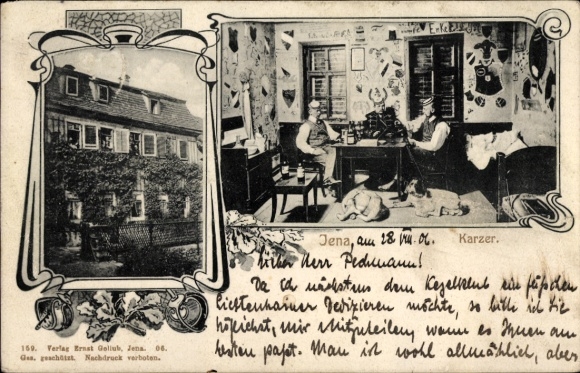 Jena, am 28. VIII. 06. Karzer.
Lieber Herr Pechmann!
Da ich nächstens dem Kegelklub ein Fäßchen
Lichtenhainer dedizieren möchte, so bitte ich Sie
höflichst, mir mitzuteilen, wann es Ihnen am
besten paßt. Man ist wohl allmählich, aber
159. Verlag Ernst Gollub, Jena. 06.
Ges. geschützt. Nachdruck verboten.